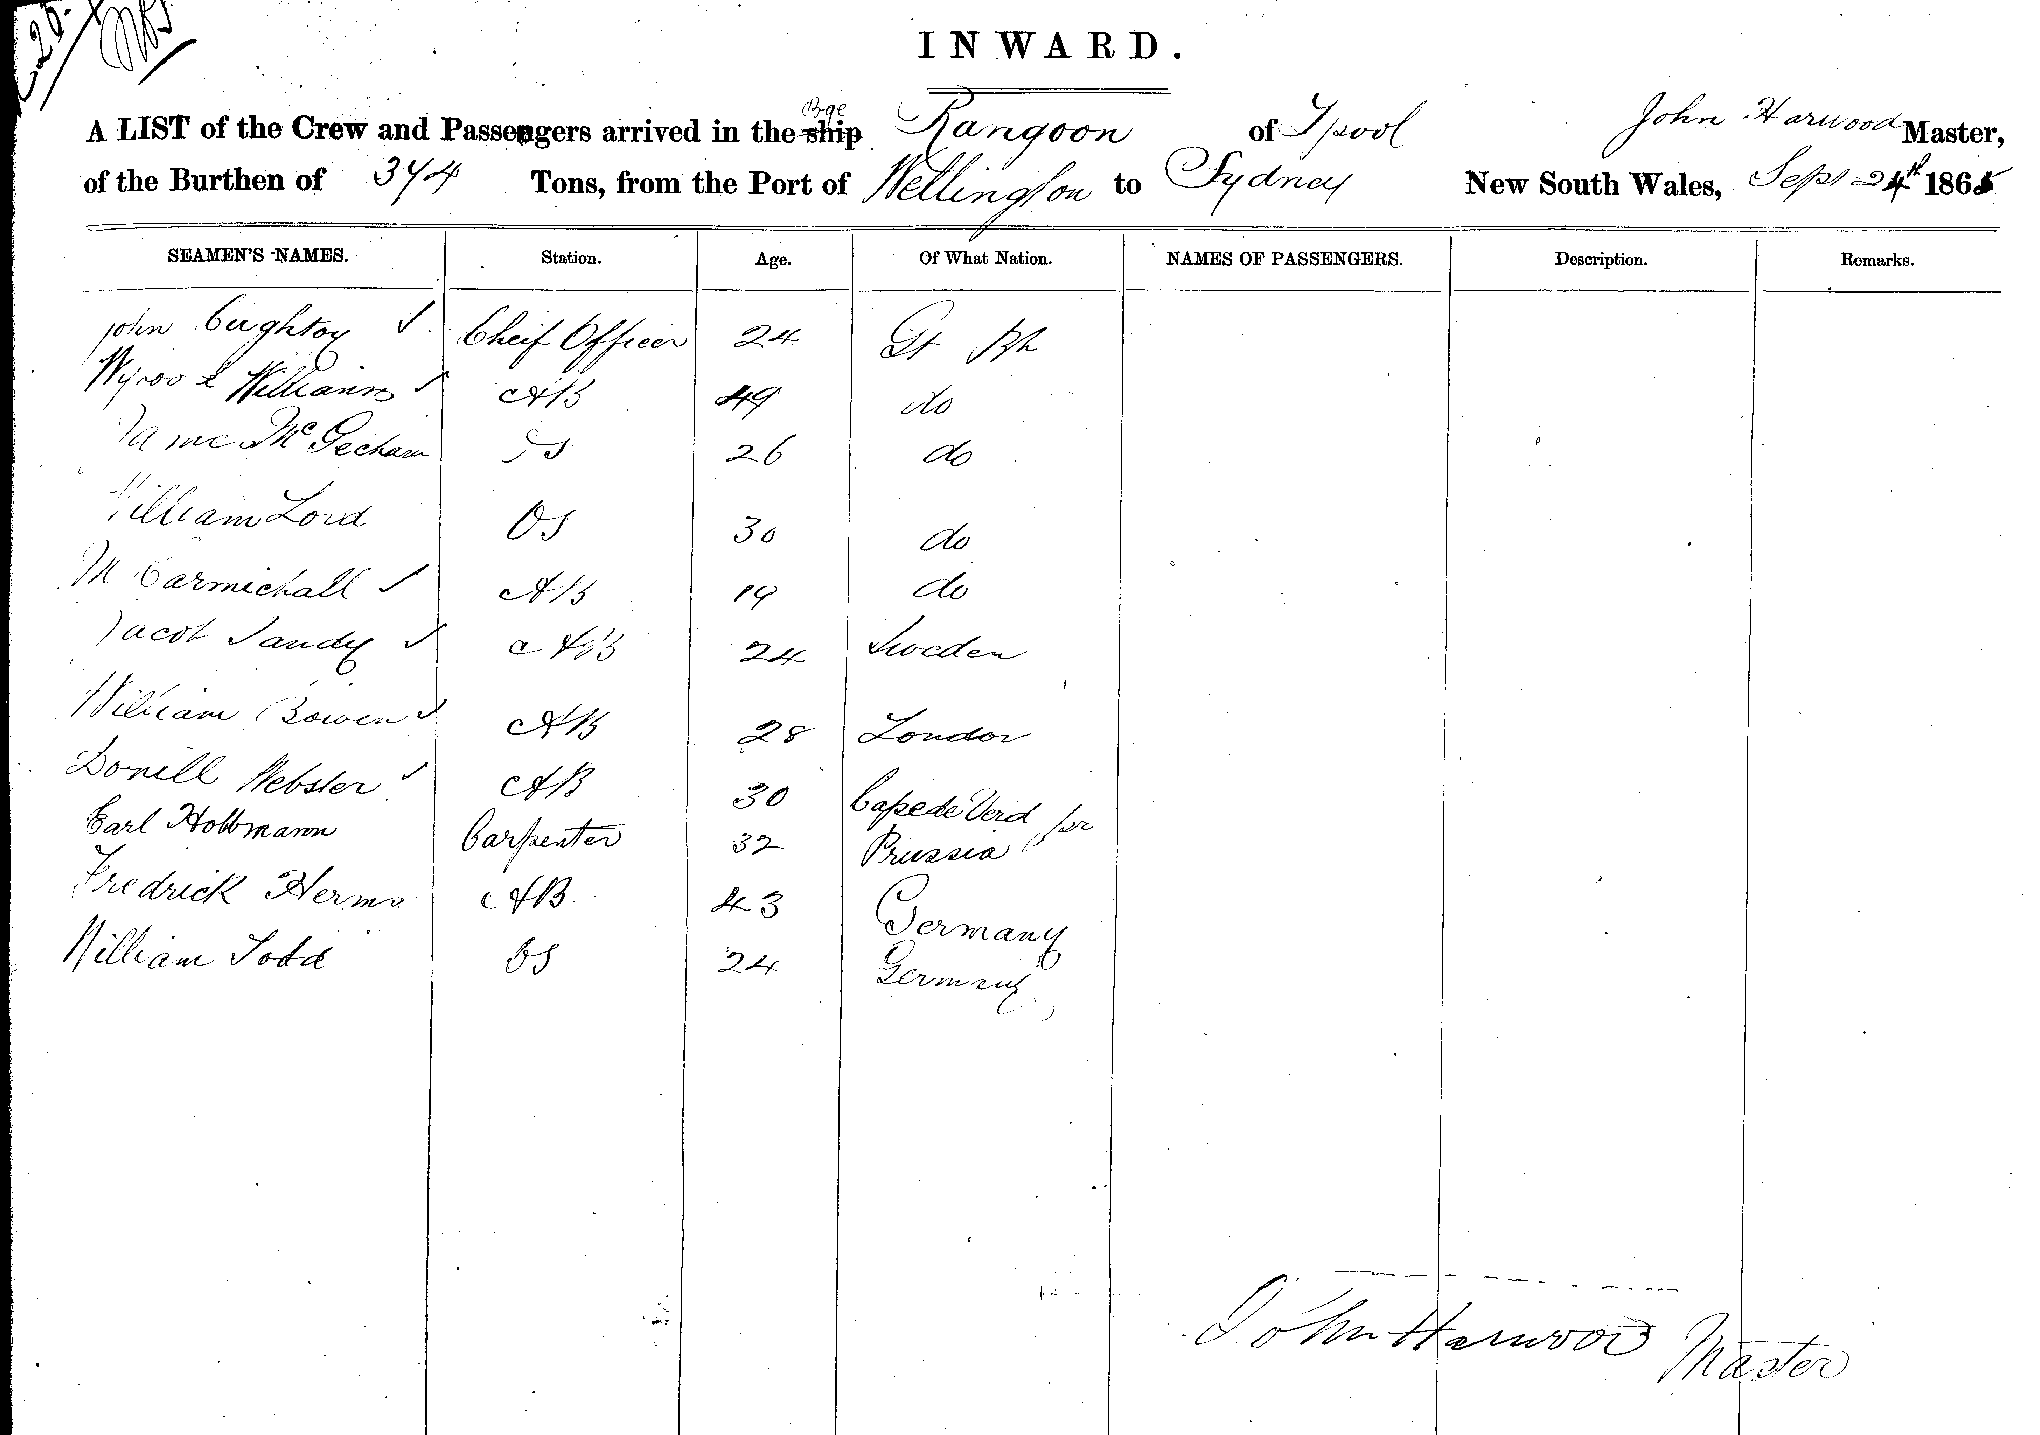 INWARD.
A LIST of the Crew and Passengers arrived in the ship Bqe Rangoon of Lpool John Harwood Master,
of the Burthen of 374 Tons, from the Port of Wellington to Sydney New South Wales, Sept 24th 1865
SEAMEN'S NAMES. Station. Age. Of What Nation. NAMES OF PASSENGERS. Description. Remarks.
John Cheif Officer 24 Gt
Williams AB 49 do
Jame 26 do
William Lord OS 30 do
M Carmichall AB 19 do
Jacob Sandy AB 24 Sweden
William Bowen AB 28 London
Webster AB 30 Cape de Verd
Carl Hobbmann Carpenter 32 Prussia
Fredrick AB 43 Germany
William Todd OS 24 Germany
John Harwood Master